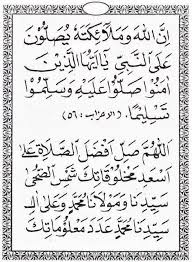 اِنَّ اللهَ وَمَلَآئِكَتَهُ يُصَلُّوْنَ
عَلَى النَّبِيِّ يَآاَيُّهَا الَّذِيْنَ
اٰمَنُوْا صَلُّوْا عَلَيْهِ وَسَلِّمُوْا
تَسْلِيْمًا. (الاحزاب: ٥٦)
اَللّٰهُمَّ صَلِّ اَفْضَلَ الصَّلَاةِ عَلَى
اَسْعَدِ مَخْلُوْقَاتِكَ شَمْسِ الضُّحَى
سَيِّدِنَا وَمَوْلَانَا مُحَمَّدٍ وَعَلَى اٰلِ
سَيِّدِنَا مُحَمَّدٍ عَدَدَ مَعْلُوْمَاتِكَ